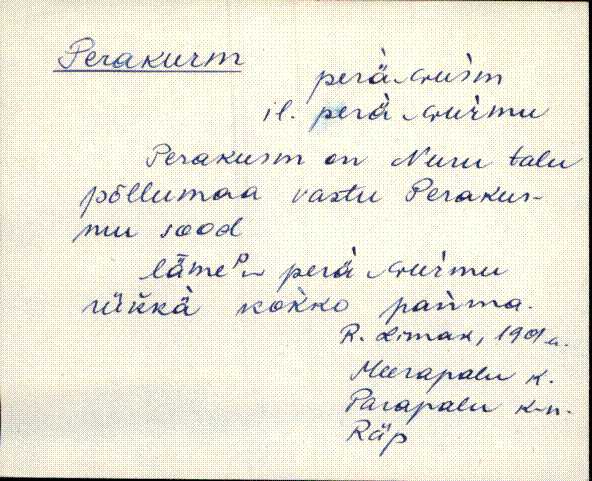 Perakurm
perä
il. perä
Perakurm on Nuru talu
põllumaa vastu Perakur-
mu sood
läme perä
rükkä kokko pan̄ma.
R. Limak, 1901 a.
Meerapalu k.
Parapalu k-n.
Räp